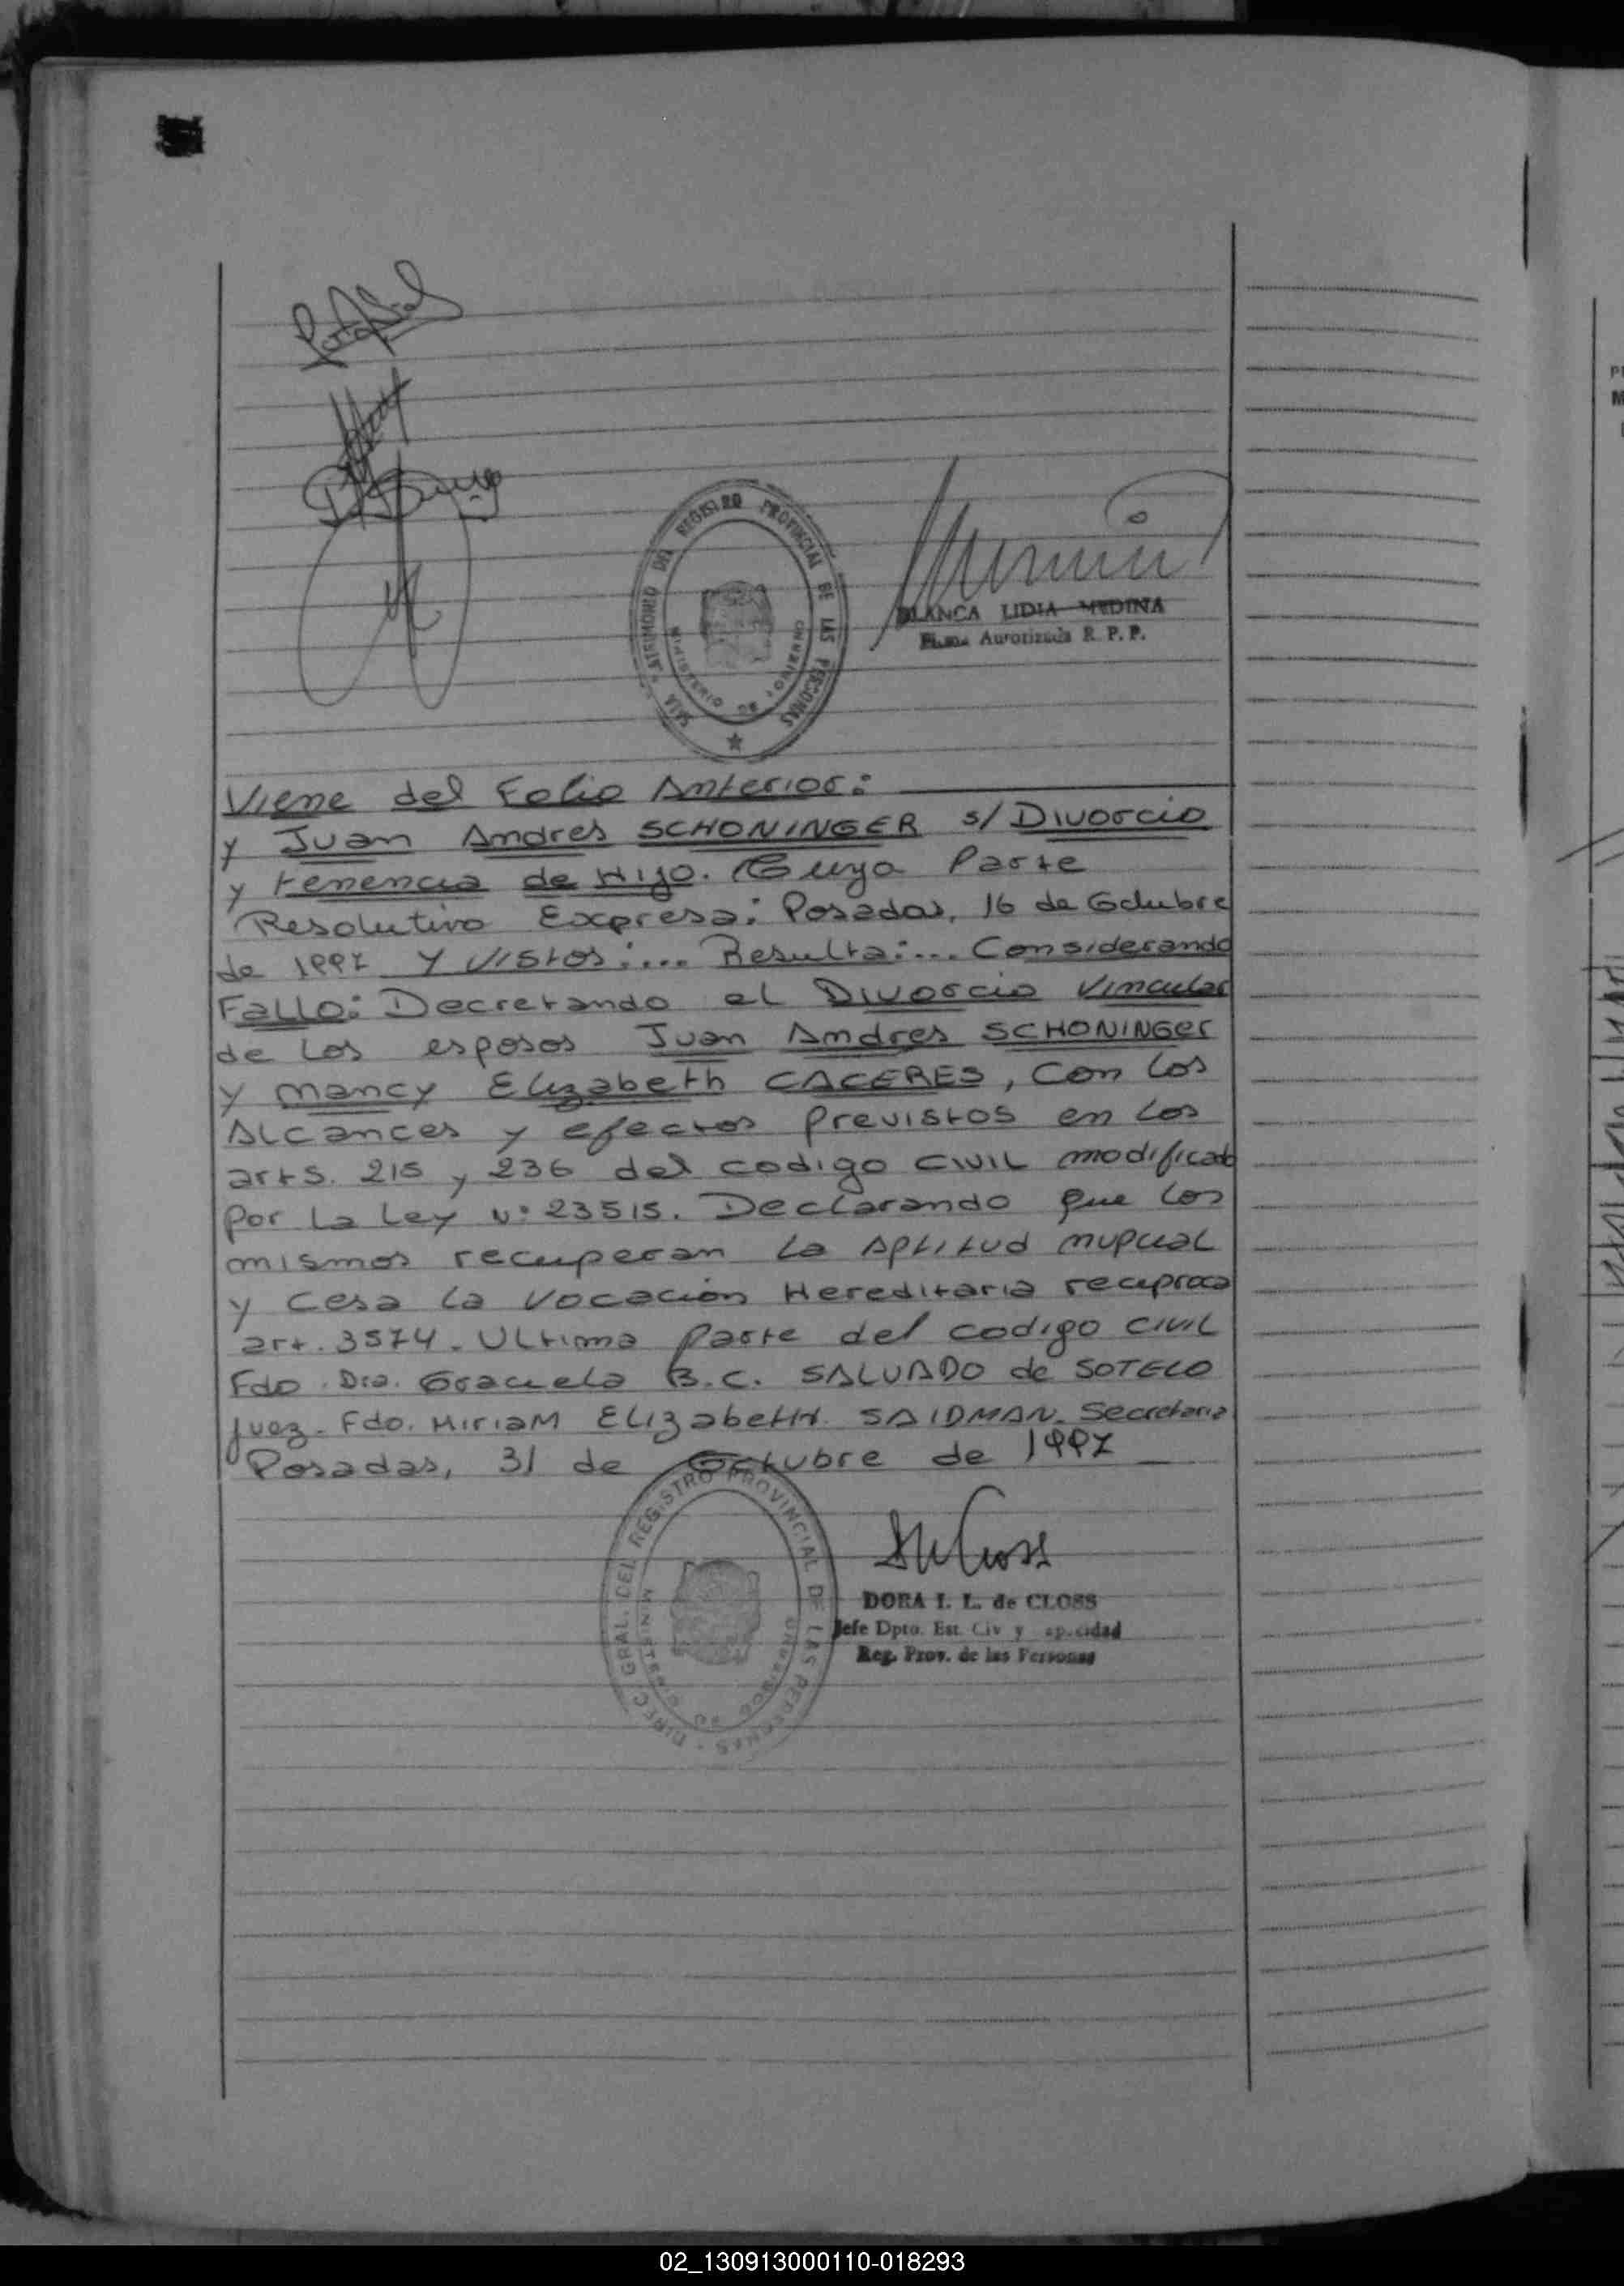 SALA MATRIMONIO DEL REGISTRO PROVINCIAL DE LAS PERSONAS
MINISTERIO DE GOBIERNO
BLANCA LIDIA MEDINA
Firma Autorizada R. P. P.
Viene del Folio Anterior:
y Juan Andres SCHONINGER s/ Divorcio
y tenencia de Hijo. Cuya Parte
Resolutiva Expresa: Posadas, 16 de Octubre
de 1997 Y VISTOS:... Resulta:... Considerando
FaLLo: Decretando el Divorcio Vincular
de Los esposos Juan Andres SCHONINGER
y Nancy Elizabeth CACERES, Con Los
Alcances y efectos Previstos en Los
arts. 215 y 236 del codigo CIVIL modificado
Por La Ley Nº 23515. Declarando que Los
mismos recuperan La Aptitud nupcial
y Cesa La Vocación Hereditaria reciproca
art. 3574. Ultima Parte del codigo CIVIL
Fdo. Dra. Graciela B.C. SALVADO de SOTELO
Juez. Fdo. MIRIAM ELIZabeTH. SAIDMAN. Secretaria
Posadas, 31 de Octubre de 1997
DIREC. GRAL. DEL REGISTRO PROVINCIAL DE LAS PERSONAS
MINISTERIO DE GOBIERNO
DORA I. L. de CLOSS
Jefe Dpto. Est. Civ y apacidad
Reg. Prov. de las Personas
02_130913000110-018293